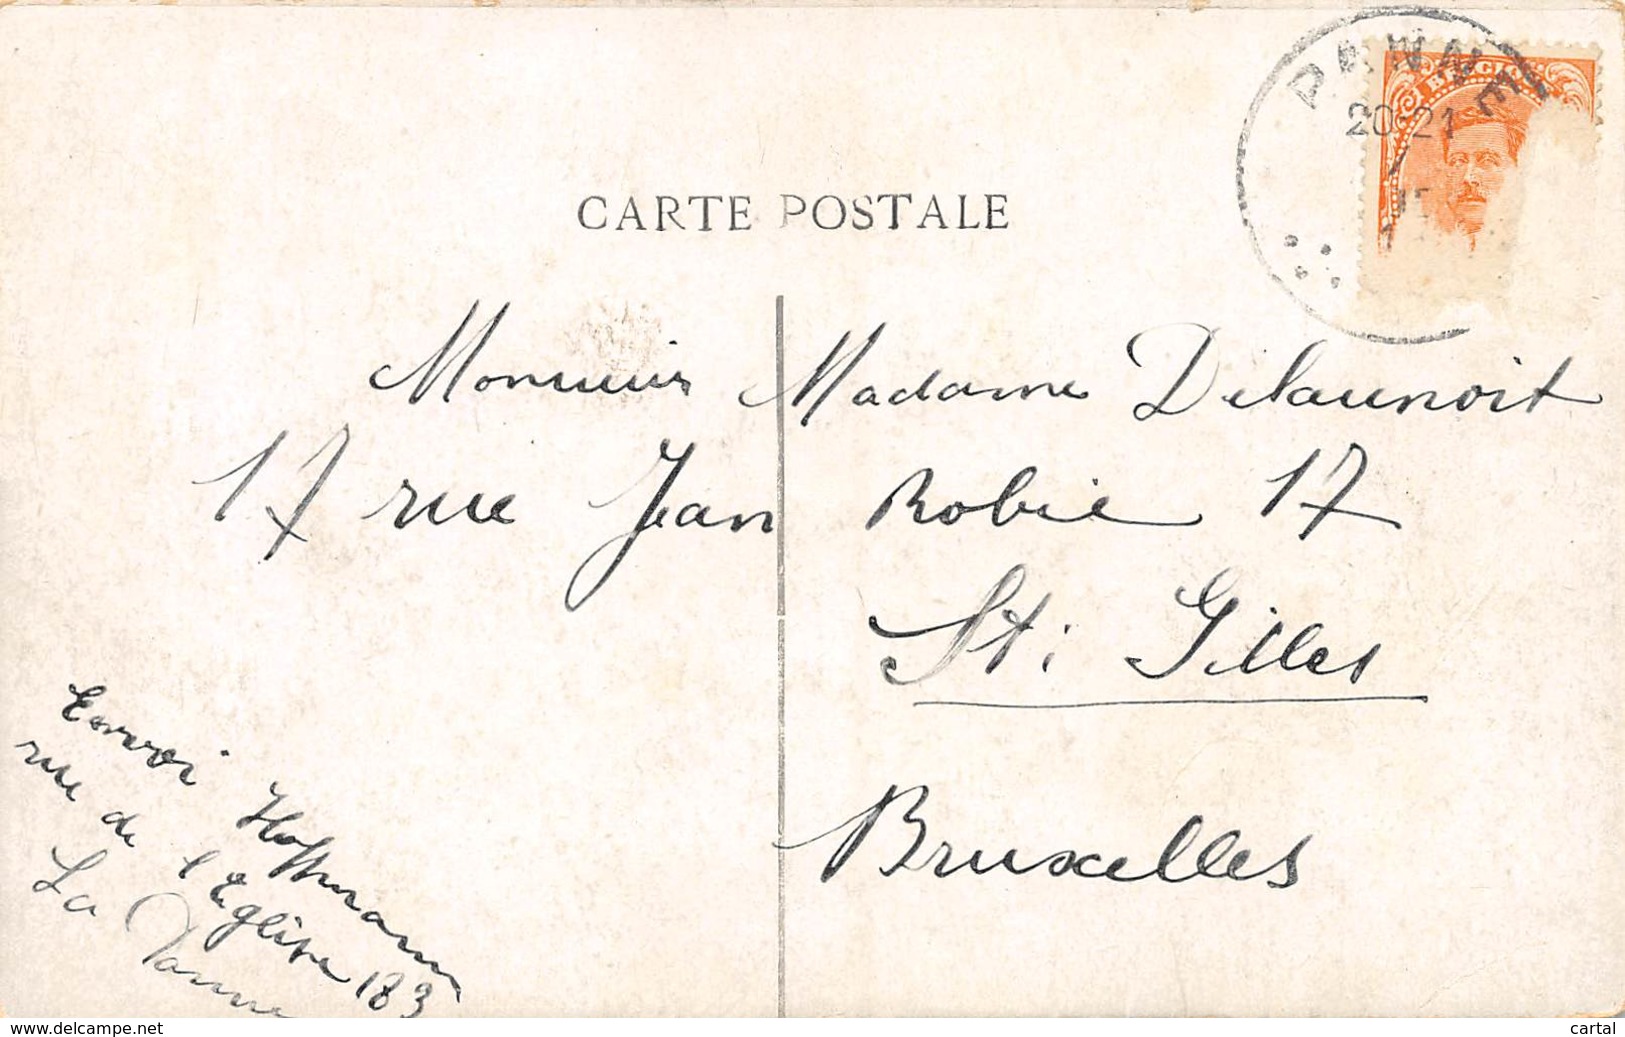 PANNE
BELGIQ
20-21
CARTE POSTALE
Monsieur Madame Delaunoit
17 rue Jean Robie 17
St. Gilles
Bruxelles
Envoi Hoffmann
rue de l'Eglise 183
La Panne
www.delcampe.net
cartal